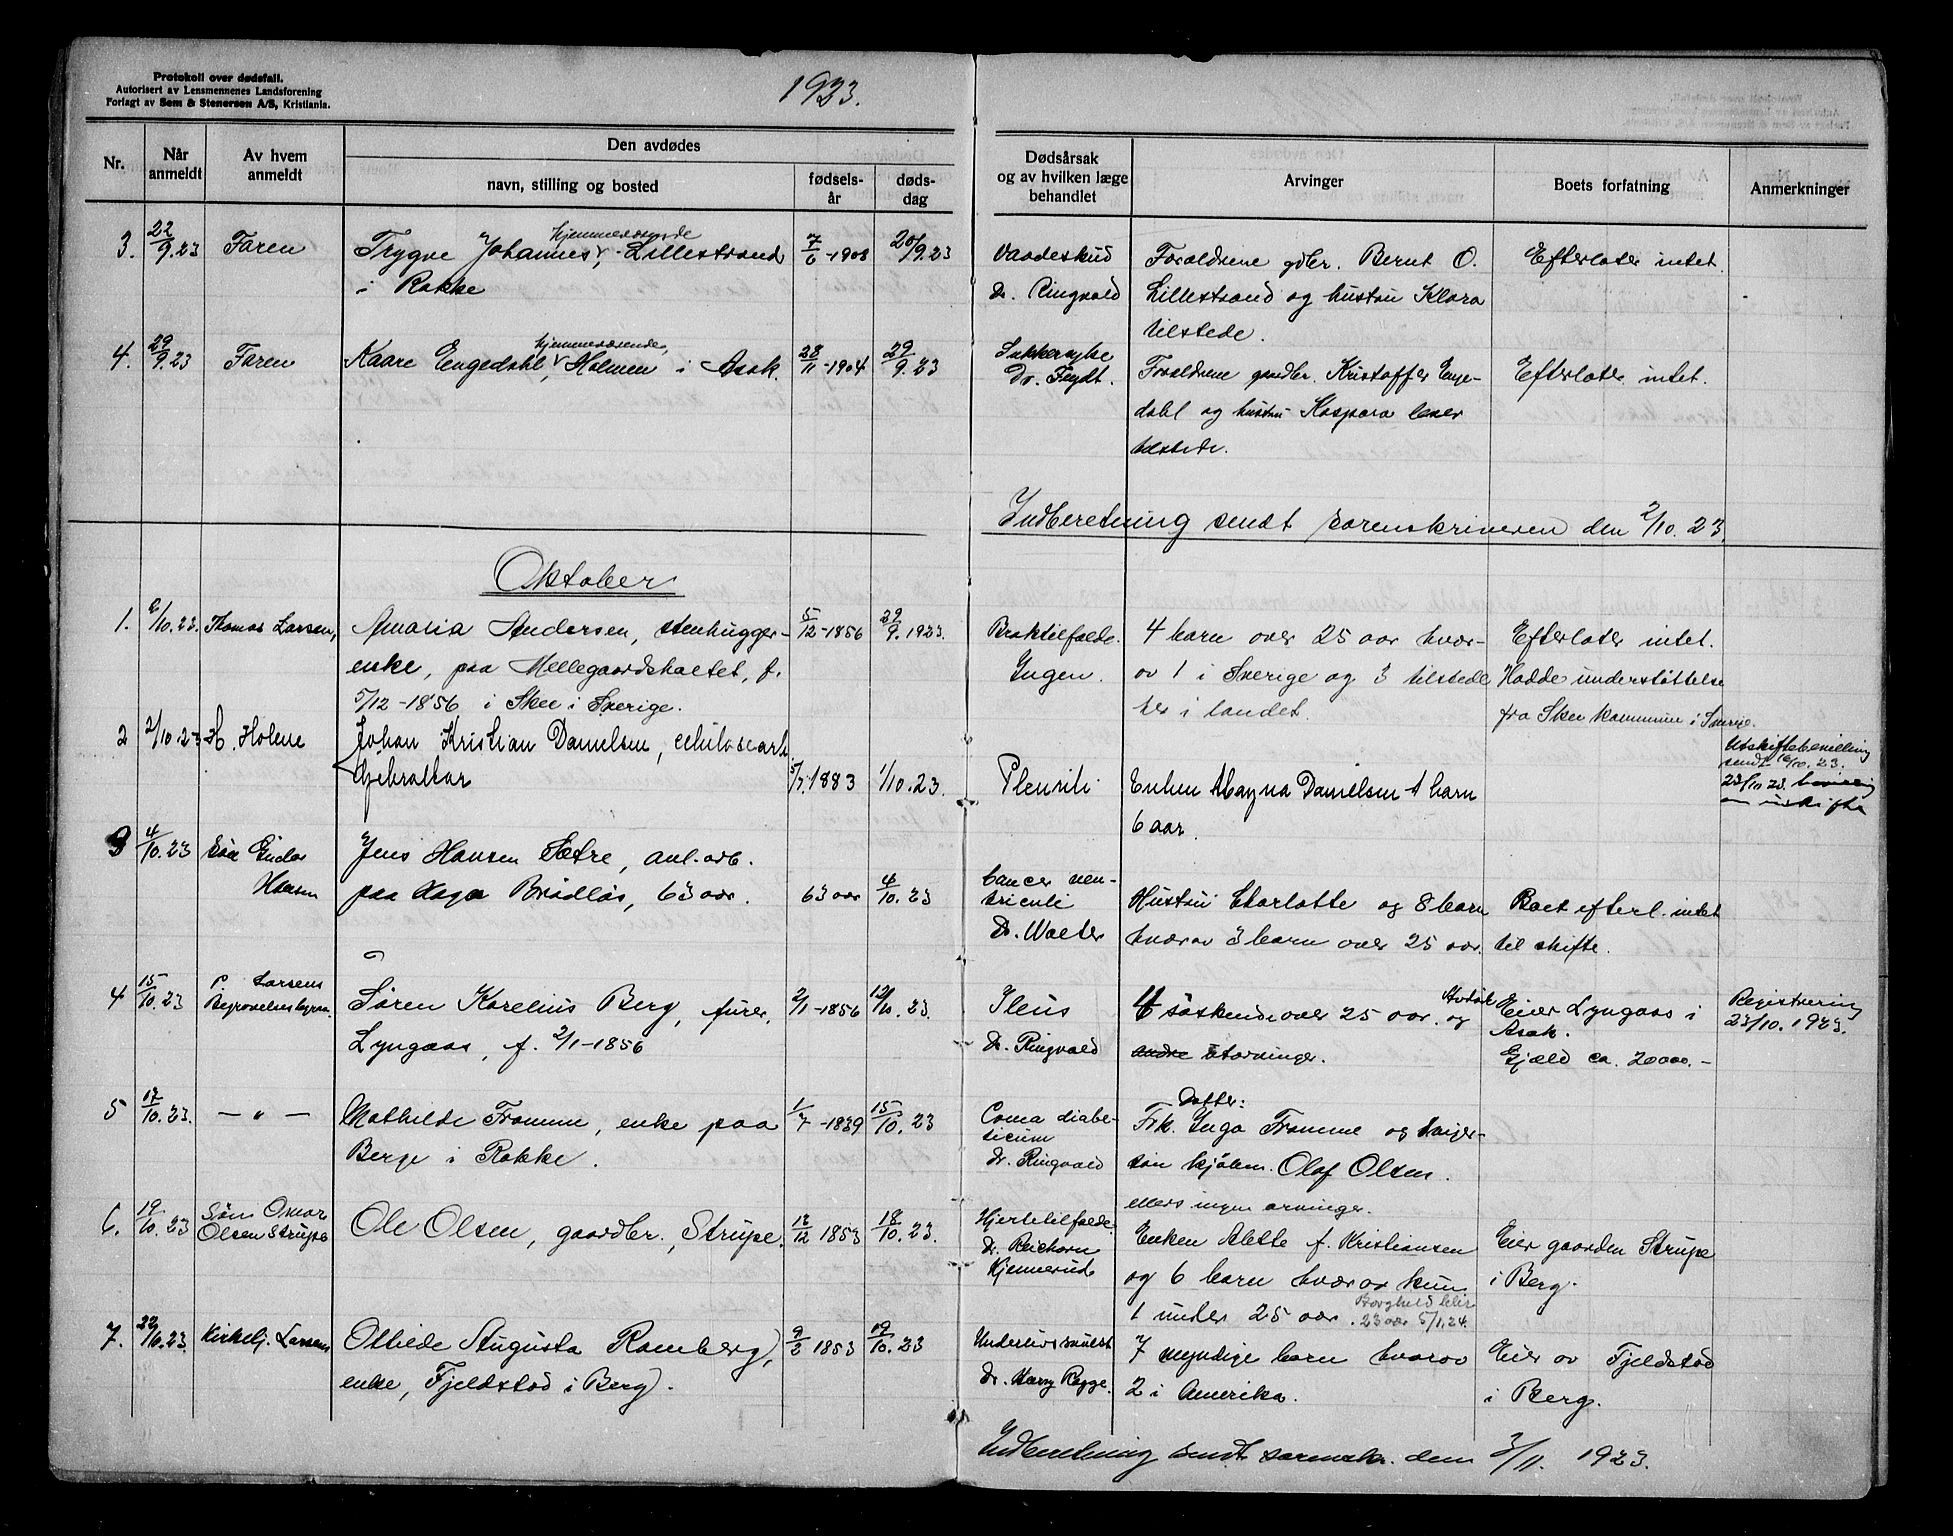 Protokoll over dødsfall.
Autorisert av Lensmennenes Landsforening
Forlagt av Sem & Stenersen A/S, Kristiania.
1923.
Nr.
Når anmeldt
Av hvem anmeldt
Den avdødes
navn, stilling og bosted
fødsels-år
døds-dag
Dødsårsak og av hvilken læge behandlet
Arvinger
Boets forfatning
Anmerkninger
3. 22/9.23 Faren
hjemmeværende
Trygve Johannes, Lillestrand
i Rokke
7/6-1908 20/9.23
Vaadeskud
Dr. Ringvold
Forældrene gdbr. Bernt O.
Lillestrand og hustru Klara
tilstede.
Efterlater intet.
4. 29/9.23 Faren
hjemmeværende,
Kaare Engedahl, Holmen i Asak.
28/11-1904 29/9.23
Sukkersyke
Dr. Feydt.
Forældrene gaardbr. Kristoffer Enge-
dahl og hustru Kaspara lever
tilstede.
Efterlater intet.
Indberetning sendt sorenskriveren den 2/10.23.
Oktober
1. 2/10.23. Thomas Larsen,
Amalia Andersen, stenhugger-
enke, paa Mellegaardshaltet, f.
5/12-1856 i Skee i Sverige.
5/12-1856 29/9.1923.
Braktilfælde.
Ingen.
4 barn over 25 aar hvor-
av 1 i Sverige og 3 tilstede
her i landet.
Efterlater intet.
Hadde understøttelse
fra Skee kommune i Sverige.
2 2/10.23 H. Holene
Johan Kristian Danielsen, cellulosearb
Gebraltar
5/7.1883 1/10.23.
Pleuriti
Enken Magna Danielsen 1 barn
6 aar.
Utskiftebevilling
sendt 16/10.23.
23/10.23.
3 4/10.23 Einar
Hansen
Jens Hansen Sætre, anl.arb.
paa Brødløs, 63 aar.
63 aar 4/10.23
Cancer ven-
triculi
Dr. Walter
Hustru Charlotte og 8 barn
hvorav 3 barn over 25 aar.
Boet efterl. intet
til skifte.
4 15/10.23 P. Larsens
Begravelsesbyraa.
Søren Karelius Berg, furer,
Lyngaas, f. 2/1-1856
2/1-1856 12/10.23.
Ileus
Dr. Ringvold
4 søskende over 25 aar. og
andre utarvinger.
Eier Lyngaas i
Asak.
Gjæld ca. 20000.-
Registrering
23/10.1923.
5 17/10.23. — " —
Mathilde Fromme, enke paa
Berge i Rokke.
1/7-1839 15/10.23
Coma diabe-
ticum
Dr. Ringvold
Datter:
Frk. Inga Fromme og
søn kjøbm. Olaf Olsen.
ellers ingen arvinger.
6. 19/10.23 Søn Omar
Olsen Strupe
Ole Olsen, gaardbr., Strupe.
13/12 1853 18/10.23.
Hjertetilfælde.
Dr. Reichorn
Kjennerud
Enken Alette f. Kristiansen
og 6 barn hvorav kun
1 under 25 aar. Borghild blir
23 aar 5/1.24.
Eier gaarden Strupe
i Berg.
7. 22/10.23. Kirkelj. Larsen
Othilde Augusta Ramberg,
enke, Fjeldstad i Berg.
9/2 1853 19/10.23
Underlivssvulst
Dr. Harry Rygge.
7 myndige barn hvorav
2 i Amerika.
Eier av Fjeldstad
i Berg.
Indberetning sendt sorenskr. den 3/11. 1923.